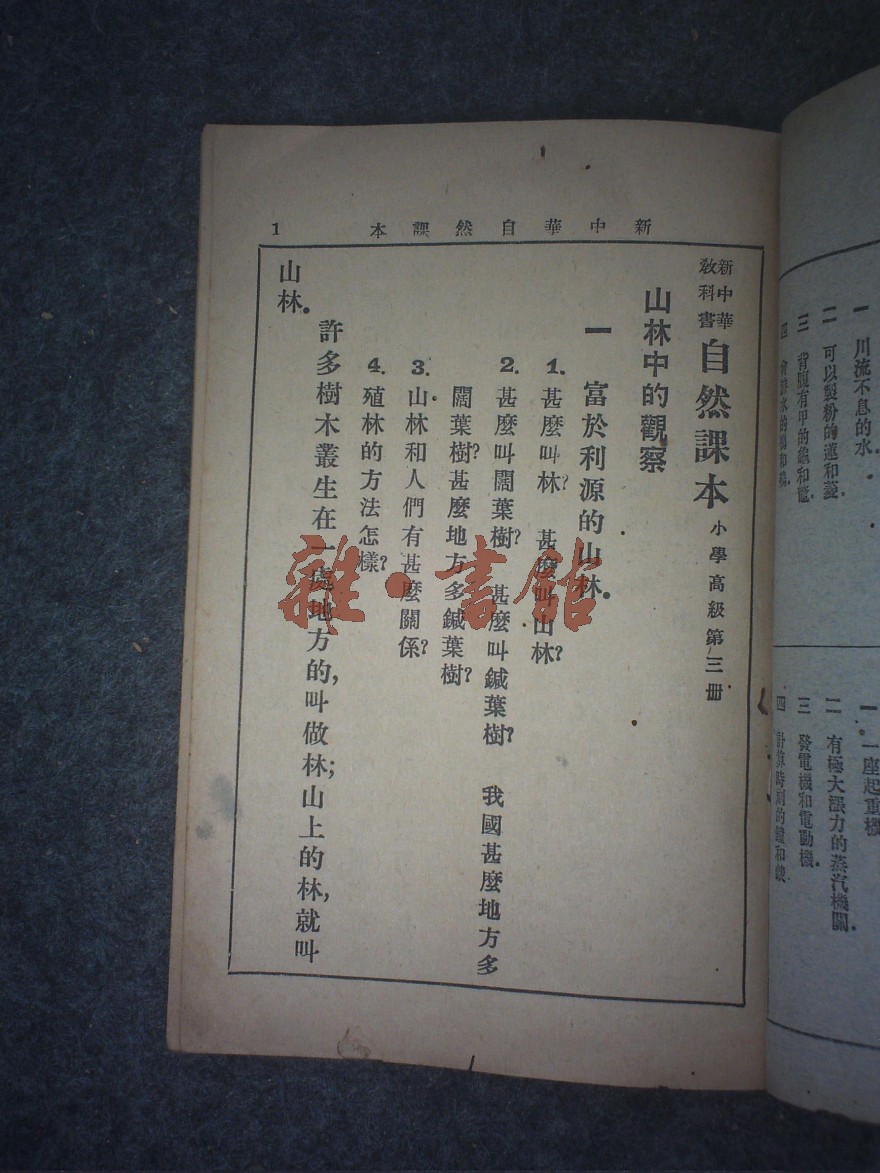 新中華自然課本
1
新中華
教科書
自然課本
小學高級第三册
山林中的觀察
一 富於利源的山林.
1. 甚麼叫林? 甚麼叫山林?
2. 甚麼叫闊葉樹? 甚麼叫鍼葉樹? 我國甚麼地方多
闊葉樹?甚麼地方多鍼葉樹?
3. 山林和人們有甚麼關係?
4. 殖林的方法怎樣?
許多樹木叢生在一處地方的,叫做林;山上的林,就叫
山林.
雜·書館
一 川流不息的水.
二 可以製粉的蓮和菱.
三 背腹有甲的龜和鼈.
一 一座起重機
二 有極大漲力的蒸汽機關.
三 發電機和電動機.